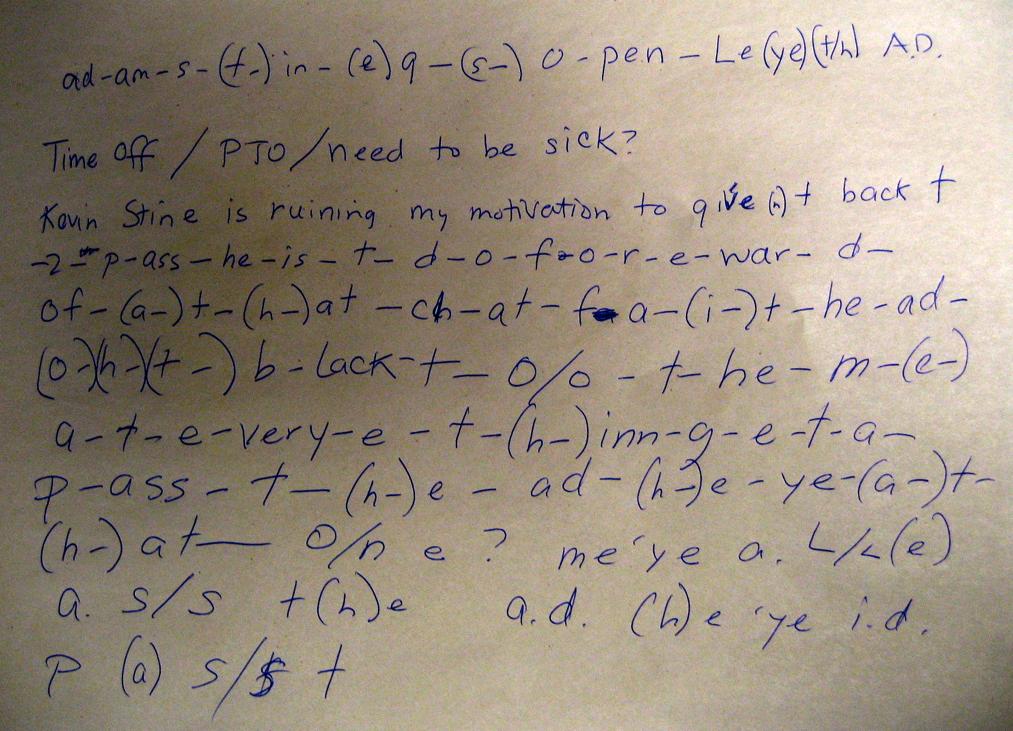 ad-am-s-(t-)in-(e)q-(s-) o-pen-Le(ye)(t/h) A.D.
Time off / PTO/need to be sick?
Kevin Stine is ruining my motivation to give (n)t back t
-2-p-ass-he-is-t-d-o-f-o-r-e-war-d-
of-(a-)t-(h-)at-ch-at-f-a-(i-)t-he-ad-
(o-)(h-)(t-)b-lack-t-o/o-t-he-m-(e-)
a-t-e-very-e-t-(h-)inn-g-e-t-a-
p-ass-t-(h-)e-ad-(h-)e-ye-(a-)t-
(h-)at-o/n e? me'ye a. L/L(e)
a. s/s t(h)e a.d. (h)e'ye i.d.
p (a) s/s t